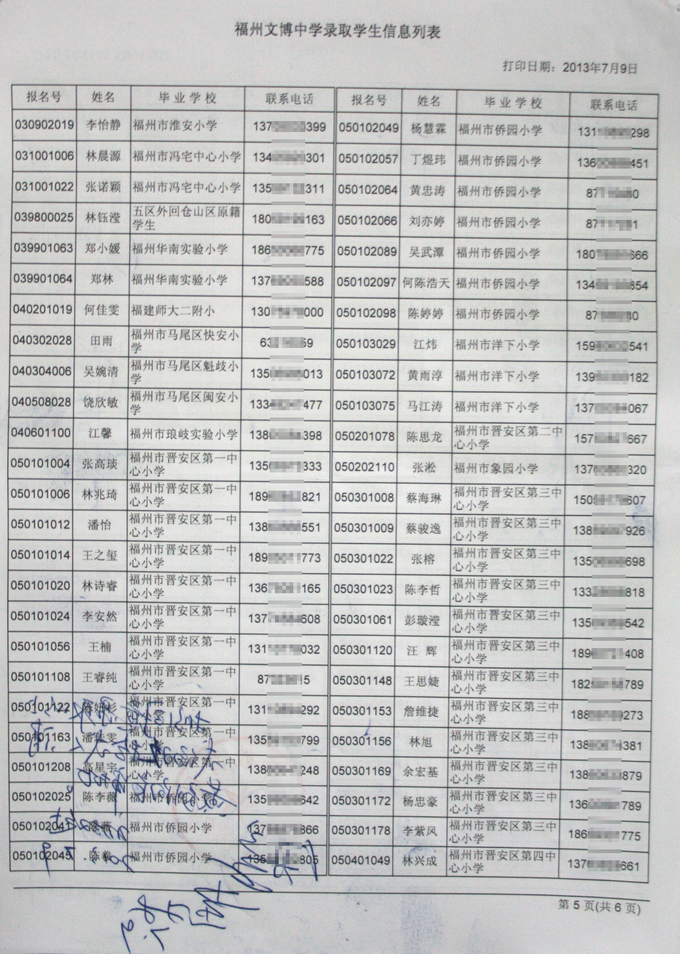 福州文博中学录取学生信息列表
打印日期：2013年7月9日
报名号 姓名 毕业学校 联系电话 报名号 姓名 毕业学校 联系电话
030902019 李怡静 福州市淮安小学 137 399 050102049 杨慧霖 福州市侨园小学 131 298
031001006 林晨源 福州市冯宅中心小学 134 301 050102057 丁煜玮 福州市侨园小学 136 451
031001022 张诺颖 福州市冯宅中心小学 135 311 050102064 黄忠涛 福州市侨园小学 87 80
039800025 林钰滢 五区外回仓山区原籍学生 180 163 050102066 刘亦婷 福州市侨园小学 87 1
039901063 郑小媛 福州华南实验小学 186 775 050102089 吴武潭 福州市侨园小学 180 666
039901064 郑林 福州华南实验小学 137 588 050102097 何陈浩天 福州市侨园小学 134 854
040201019 何佳雯 福建师大二附小 130 000 050102098 陈婷婷 福州市侨园小学 87 80
040302028 田雨 福州市马尾区快安小学 63 69 050103029 江炜 福州市洋下小学 159 541
040304006 吴婉清 福州市马尾区魁歧小学 135 013 050103072 黄雨淳 福州市洋下小学 139 182
040508028 饶欣敏 福州市马尾区闽安小学 133 477 050103075 马江涛 福州市洋下小学 137 067
040601100 江馨 福州市琅岐实验小学 138 398 050201078 陈思龙 福州市晋安区第二中心小学 157 667
050101004 张高琰 福州市晋安区第一中心小学 135 333 050202110 张淞 福州市象园小学 137 320
050101006 林兆琦 福州市晋安区第一中心小学 189 821 050301008 蔡海琳 福州市晋安区第三中心小学 150 607
050101012 潘怡 福州市晋安区第一中心小学 138 551 050301009 蔡骏逸 福州市晋安区第三中心小学 138 926
050101014 王之玺 福州市晋安区第一中心小学 189 773 050301022 张榕 福州市晋安区第三中心小学 135 698
050101020 林诗睿 福州市晋安区第一中心小学 136 165 050301023 陈李哲 福州市晋安区第三中心小学 133 818
050101024 李安然 福州市晋安区第一中心小学 137 608 050301061 彭璇滢 福州市晋安区第三中心小学 135 542
050101056 王楠 福州市晋安区第一中心小学 131 032 050301120 汪辉 福州市晋安区第三中心小学 189 408
050101108 王睿纯 福州市晋安区第一中心小学 87 15 050301148 王思婕 福州市晋安区第三中心小学 182 789
050101122 福州市晋安区第一中心小学 131 292 050301153 詹维捷 福州市晋安区第三中心小学 188 273
050101163 福州市晋安区第一中心小学 135 799 050301156 林旭 福州市晋安区第三中心小学 138 381
050101208 高星宇 福州市晋安区第一中心小学 138 248 050301169 余宏基 福州市晋安区第三中心小学 138 879
050102025 陈李薇 福州市侨园小学 135 642 050301172 杨忠豪 福州市晋安区第三中心小学 136 789
050102041 福州市侨园小学 137 866 050301178 李紫风 福州市晋安区第三中心小学 186 775
050102045 福州市侨园小学 135 805 050401049 林兴成 福州市晋安区第四中心小学 137 661
第 5 页(共 6 页)